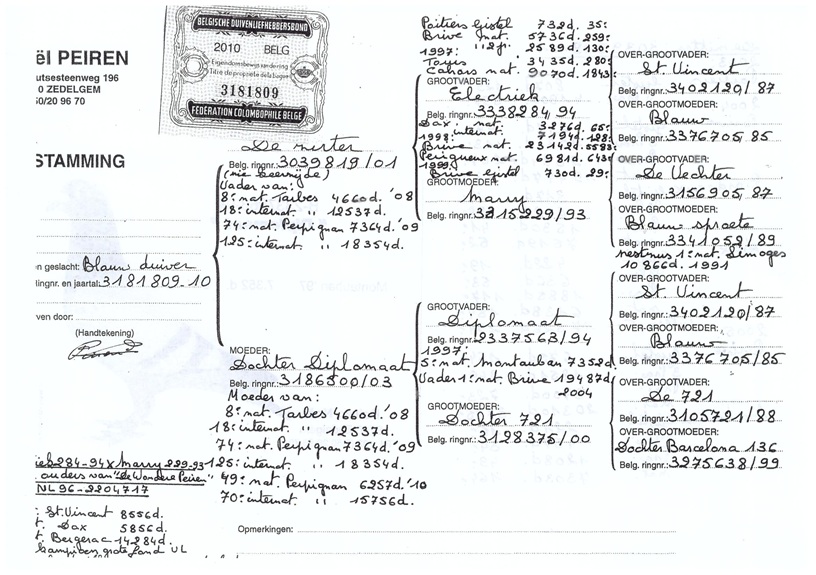 ël PEIREN
utsesteenweg 196
0 ZEDELGEM
50/20 96 70
BELGISCHE DUIVENLIEFHEBBERSBOND
2010 BELG
Eigendomsbewijs van de ring
Titre de propriété de la bague
3181809
FÉDÉRATION COLOMBOPHILE BELGE
STAMMING
n geslacht: Blauw duiver
lingnr. en jaartal: 3181809-10
ven door:
(Handtekening)
Belg. ringnr.: 3039819/01
Vader van:
8e nat. Tarbes 4660d. '08
18e internat. " 12537d.
74e nat. Perpignan 7364d. '09
125e internat. " 18354d.
MOEDER:
Dochter Diplomaat
Belg. ringnr.: 3186500/03
Moeder van:
8e nat. Tarbes 4660d. '08
18e internat. " 12537d.
74e nat. Perpignan 7364d. '09
125e internat. " 18354d.
49e nat. Perpignan 6257d. '10
70e internat. " 15756d.
284-94 x Marry 229-93
ouders van "de Wondere Peiren"
NL 96-2204717
St. Vincent 8556d.
Dax 5856d.
Bergerac 14284d.
Poitiers Gistel 732d. 35e
Brive nat. 5736d. 259e
1997: 2589d. 130e
3435d. 280e
Cahors nat. 9070d. 1843e
GROOTVADER:
Electriek
Belg. ringnr.: 3338284, 94
Dax nat. 3276d. 65e
1998: internat. 7194d. 128e
Brive nat. 23142d. 5583e
Perigueux nat. 6981d. 643e
1999:
Brive Gistel 730d. 29e
GROOTMOEDER:
Marry
Belg. ringnr.: 3215229/93
GROOTVADER:
Diplomaat
Belg. ringnr.: 2337563/94
1997:
5e nat. Montauban 7352d.
Vader 1e nat. Brive 19487d
2004
GROOTMOEDER:
Dochter 721
Belg. ringnr.: 3128375/00
OVER-GROOTVADER:
St. Vincent
Belg. ringnr.: 3402120/87
OVER-GROOTMOEDER:
Blauw
Belg. ringnr.: 3376705, 85
OVER-GROOTVADER:
De Vechter
Belg. ringnr.: 3156905, 87
OVER-GROOTMOEDER:
Blauw
Belg. ringnr.: 3341052/89
nestzus 1e nat. Limoges
10866d. 1991
OVER-GROOTVADER:
St. Vincent
Belg. ringnr.: 3402120/87
OVER-GROOTMOEDER:
Blauw
Belg. ringnr.: 3376705/85
OVER-GROOTVADER:
De 721
Belg. ringnr.: 3105721/88
OVER-GROOTMOEDER:
Dochter Barcelona 136
Belg. ringnr.: 3275638/99
Opmerkingen: